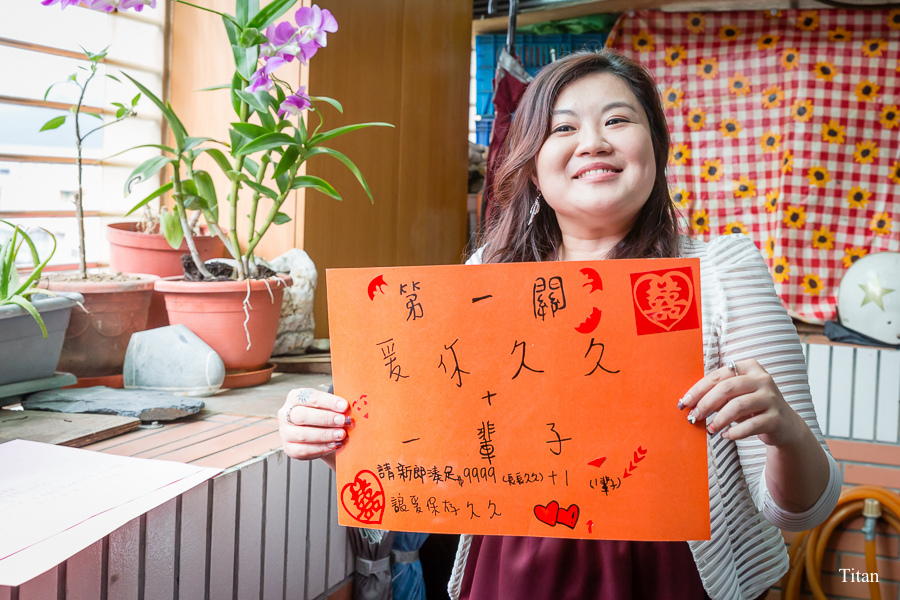 第一關
囍
愛你久久
+
一輩子
請新郎湊足$9999(長長久久)+1(1輩子)
囍
讓愛保存久久
Titan